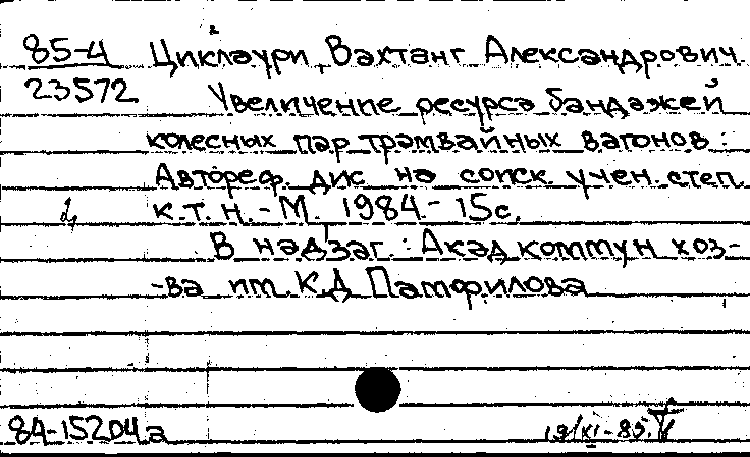 85-4 Циклаури, Вахтанг Александрович
23572 Увеличение ресурса бандажей
колесных пар трамвайных вагонов:
Автореф. дис на соиск учен. степ.
к.т.н. - М. 1984 - 15с.
В надзаг.: Акад коммун хоз-
-ва им. К.Д Памфилова
84-15204а 19/XI-85.